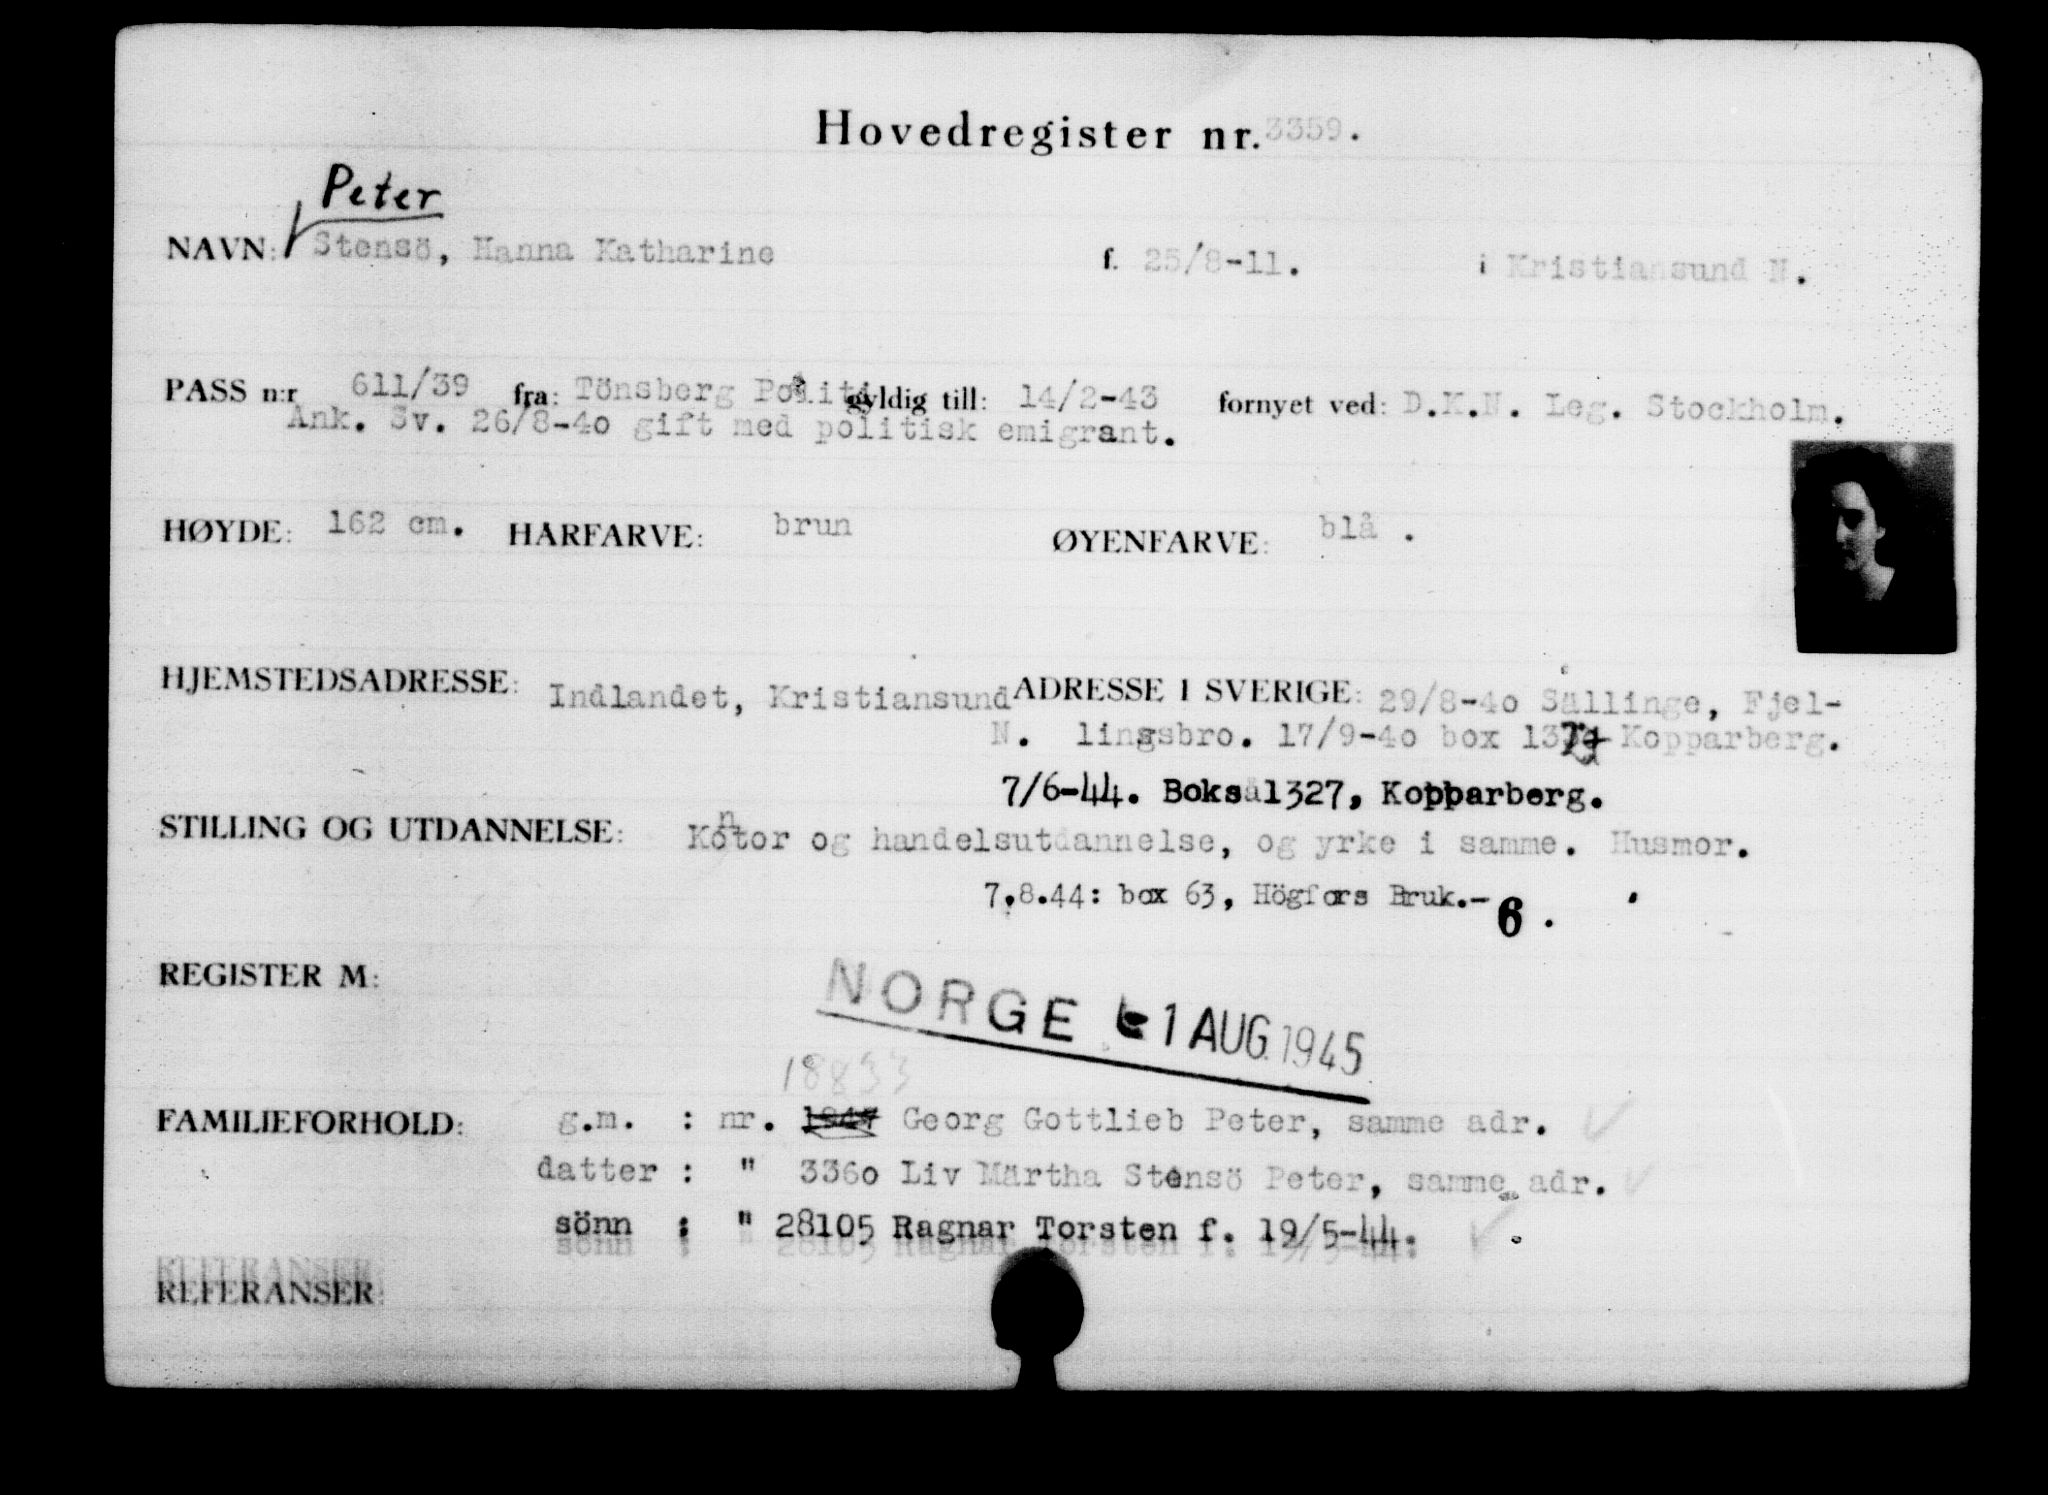 Hovedregister nr. 3359.
Peter
NAVN: Stensö, Hanna Katharine f. 25/8-11. i Kristiansund N.
PASS n:r 611/39 fra: Tönsberg Politi gyldig till: 14/2-43 fornyet ved: D.K.N. Leg. Stockholm.
Ank. Sv. 26/8-4o gift med politisk emigrant.
HØYDE: 162 cm. HÅRFARVE: brun ØYENFARVE: blå .
HJEMSTEDSADRESSE: Indlandet, Kristiansund ADRESSE I SVERIGE: 29/8-4o Sällinge, Fjel-
N. lingsbro. 17/9-4o box Kopparberg.
7/6-44. Boks 1327, Kopparberg.
STILLING OG UTDANNELSE: Kontor og handelsutdannelse, og yrke i samme. Husmor.
7.8.44: box 63, Högfors Bruk.-
6.
REGISTER M:
NORGE 1 AUG. 1945
18833
FAMILIEFORHOLD: g.m. : nr. Georg Gottlieb Peter, samme adr.
datter : " 336o Liv Märtha Stensö Peter, samme adr.
sönn : " 28105 Ragnar Torsten f. 19/5-44.
REFERANSER: